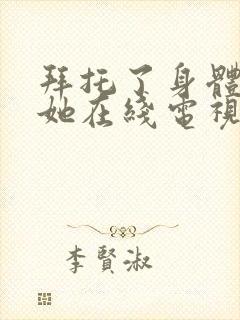 拜托了身體
她在綫電視
李賢淑